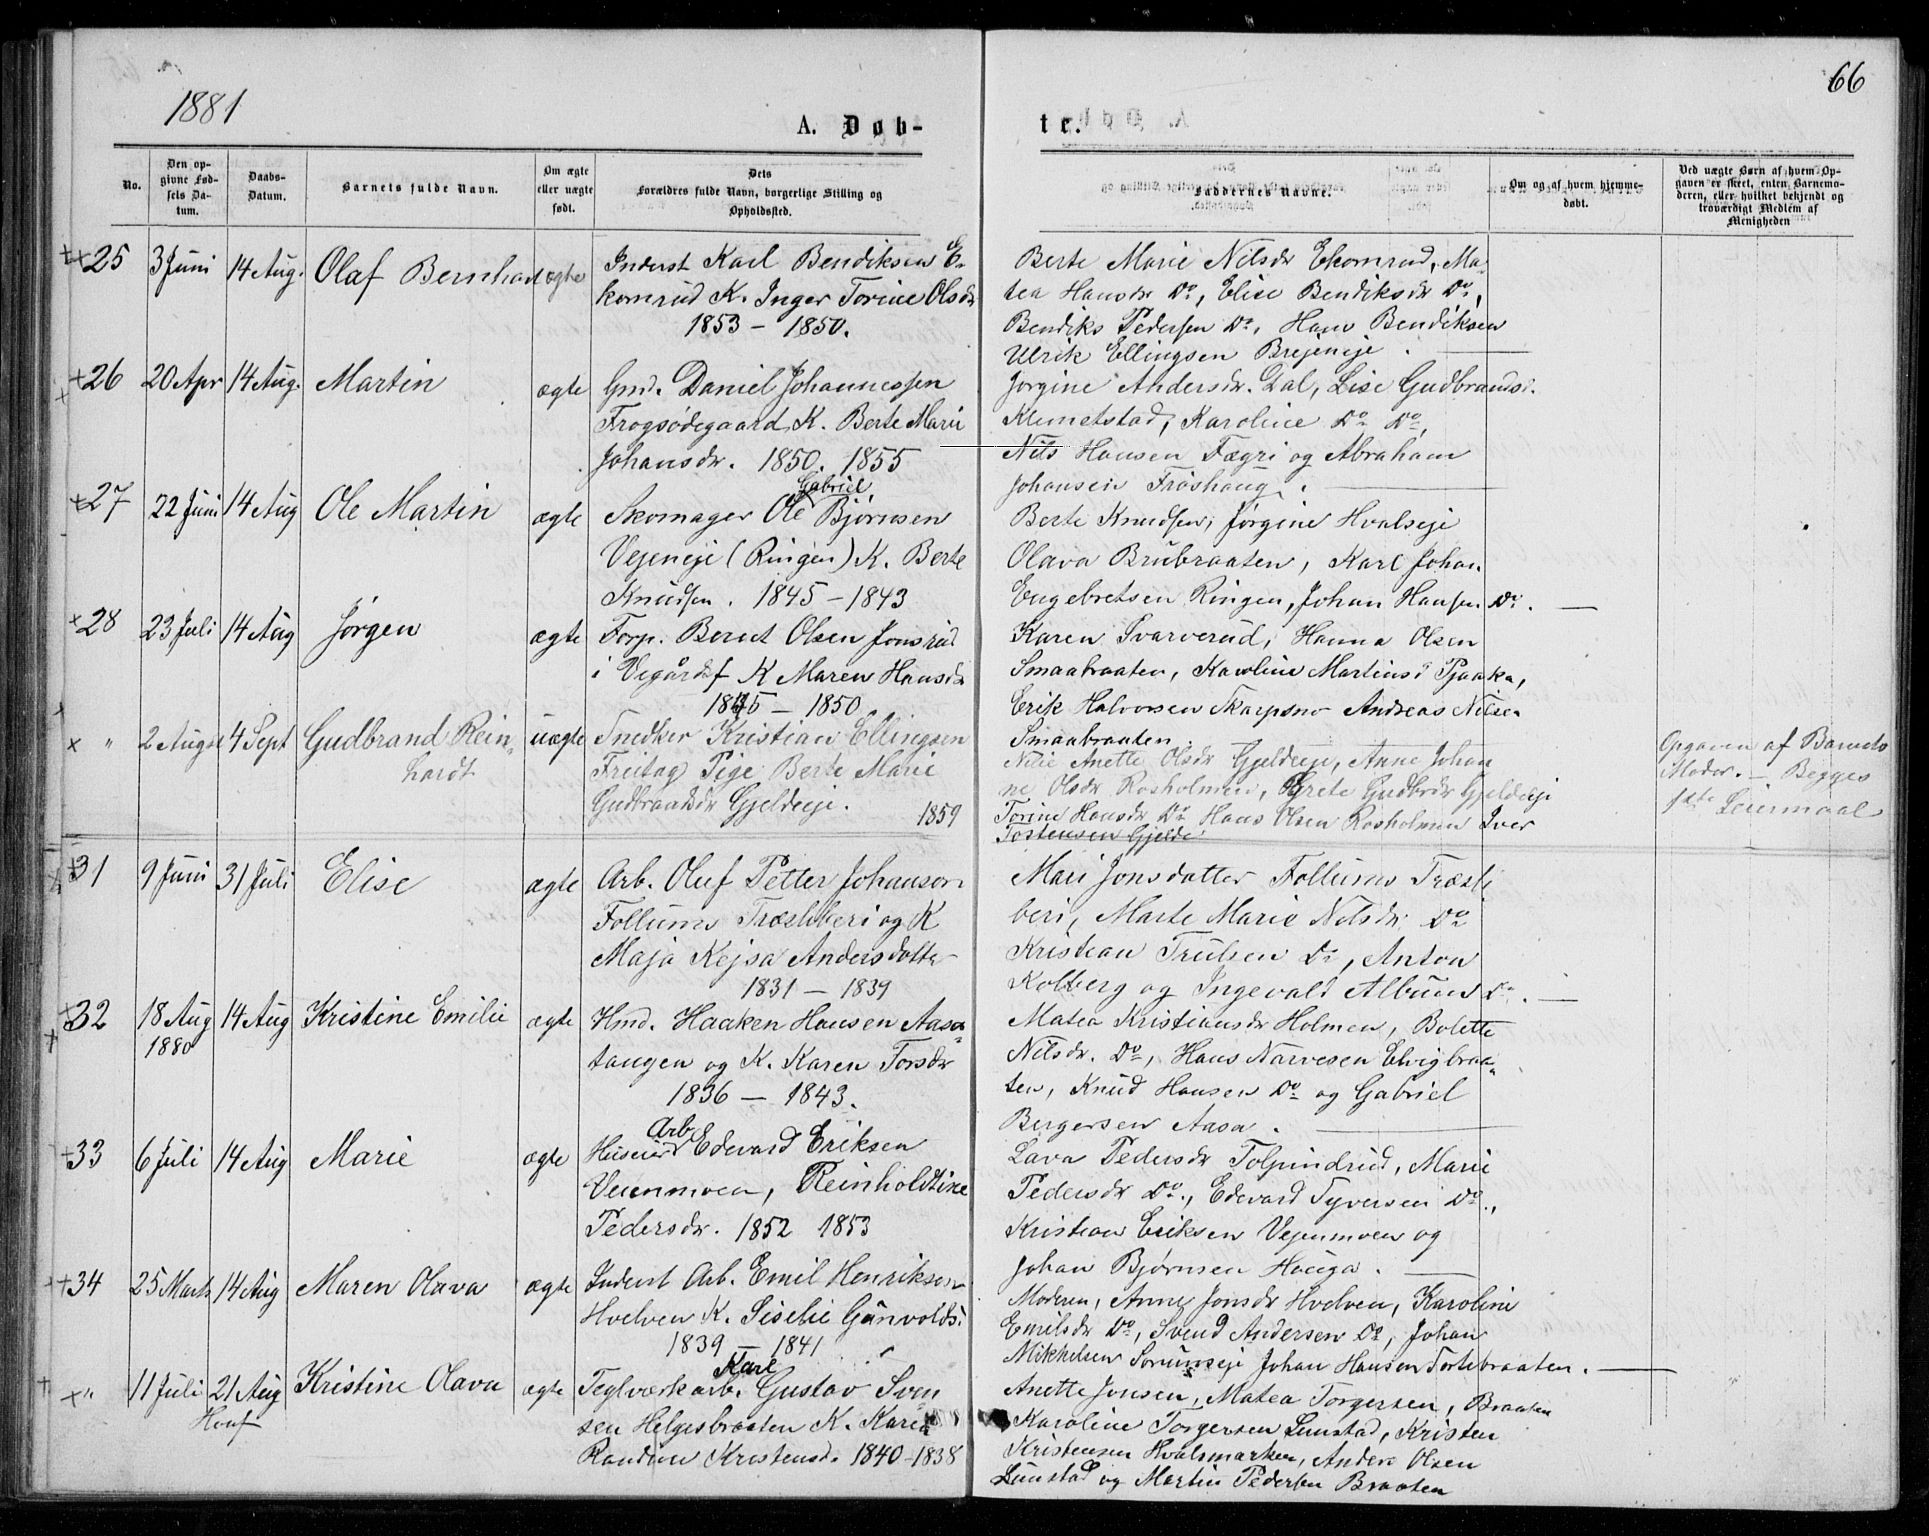 1881
66
A. Døb-
te.
No.
Den op-
givne Fød-
sels Da-
tum.
Daabs-
Datum.
Barnets fulde Navn.
Om ægte
eller uægte
født.
Dets
Forældres fulde Navn, borgerlige Stilling og
Opholdssted.
Faddernes Navne.
Om og af hvem hjemme-
døbt.
Ved uægte Børn af hvem Op-
gaven er skeet, enten Barnemo-
deren, eller hvilket bekjendt og
troværdigt Medlem af
Menigheden
25 3 Juni 14 Aug. Olaf Bernhard ægte
Inderst Karl Bendiksen E-
komrud K. Inger Torine Olsdr
1853 - 1850.
Berte Marie Nilsdr Ekomrud, Ma-
tea Hansdr Do, Elise Bendiksdr Do,
Bendiks Pedersen Do, Hans Bendiksen
Ulrik Ellingsen Brejeneje.
26 20 Apr 14 Aug. Martin ægte
Gmd. Daniel Johannessen
Frogsødegaard K. Berte Marie
Johansdr. 1850. 1855
Jørgine Andersdr. Dal, Lise Gudbrandsd.
Klemetstad, Karoline Do Do,
Nils Hansen Fægri og Abraham
Johansen Frøshaug.
27 22 Juni 14 Aug Ole Martin ægte
Gabriel
Skomager Ole Bjørnsen
Vejeneje (Ringen) K. Berte
Knudsen. 1845 - 1843
Berte Knudsen, Jørgine Hvalseje
Olava Brubraaten, Karl Johan
Engebretsen Ringen, Johan Hansen Do.
28 23 Juli 14 Aug Jørgen ægte
Forp. Bernt Olsen Jonsrud
i Vegårdsf K Maren Hansdr
1845 - 1850
Karen Svarverud, Hanna Olsen
Smaabraaten, Karoline Martinsd Pjaaka,
Erik Halvorsen Skarpsno Andreas Nilsen
Smaabraaten.
" 2 August 4 Sept Gudbrand Rein-
hardt uægte
Snedker Kristian Ellingsen
Freitag Pige Berte Marie
Gudbrandsdr Gjeldeeje. 1859
Nilie Anette Olsdr Gjeldeeje, Anne Johan
ne Olsdr Rosholmen, Grete Gudbrdr Gjeldeeje
Torine Hansdr Do Hans Olsen Rosholmen Iver
Tostensen Gjelde
Opgaven af Barnets
Moder. - Begges
1ste Leiermaal
31 9 Juni 31 Juli Elise ægte
Arb. Oluf Petter Johanson
Follums Træsliberi og K
Maja Kejsa Andersdatter
1831 - 1839
Mari Jonsdatter Follums Træsli
beri, Marte Marie Nilsdr Do
Kristian Trulsen Do, Anton
Kolberg og Ingevald Albuns Do.
32 18 Aug 14 Aug Kristine Emilie ægte
1880
Hmd. Haaken Hansen Aasa-
tangen og K. Karen Torsdr
1836 - 1843.
Matea Kristiansdr Holmen, Bolette
Nilsdr. Do, Hans Narvesen Elvigbraa-
ten, Knud Hansen Do og Gabriel
Bergersen Aasa.
33 6 Juli 14 Aug Marie ægte
Arb
Huseier Edevard Eriksen
Veienmoen, Reinholdtine
Pedersdr. 1852 1853
Lava Pedersdr Tolpindrud, Marie
Pedersdr Do., Edevard Syversen Do.,
Kristian Eriksen Vejenmoen og
Johan Bjørnsen Houga.
34 25 Marts 14 Aug Maren Olava ægte
Inderst Arb. Emil Henriksen
Hvelven K. Siselie Gunvoldsd
1839 - 1841
Moderen, Anne Jonsdr Hvelven, Karoline
Emilsdr Do, Svend Andersen Do, Johan
Mikkelsen Sørumseje Johan Hansen Tortebraaten.
" 11 Juli 21 Aug Kristine Olava ægte
Hval
Karl
Teglværkarb. Gustav Sven
sen Helgesbraaten K. Karen
Randine Kristensd. 1840 - 1838
Anette Jonsen, Matea Torgersen, Braaten
Karoline Torgersen Lunstad, Kristen
Kristensen Hvalsmarken, Anders Olsen
Lunstad og Martin Pedersen Braaten